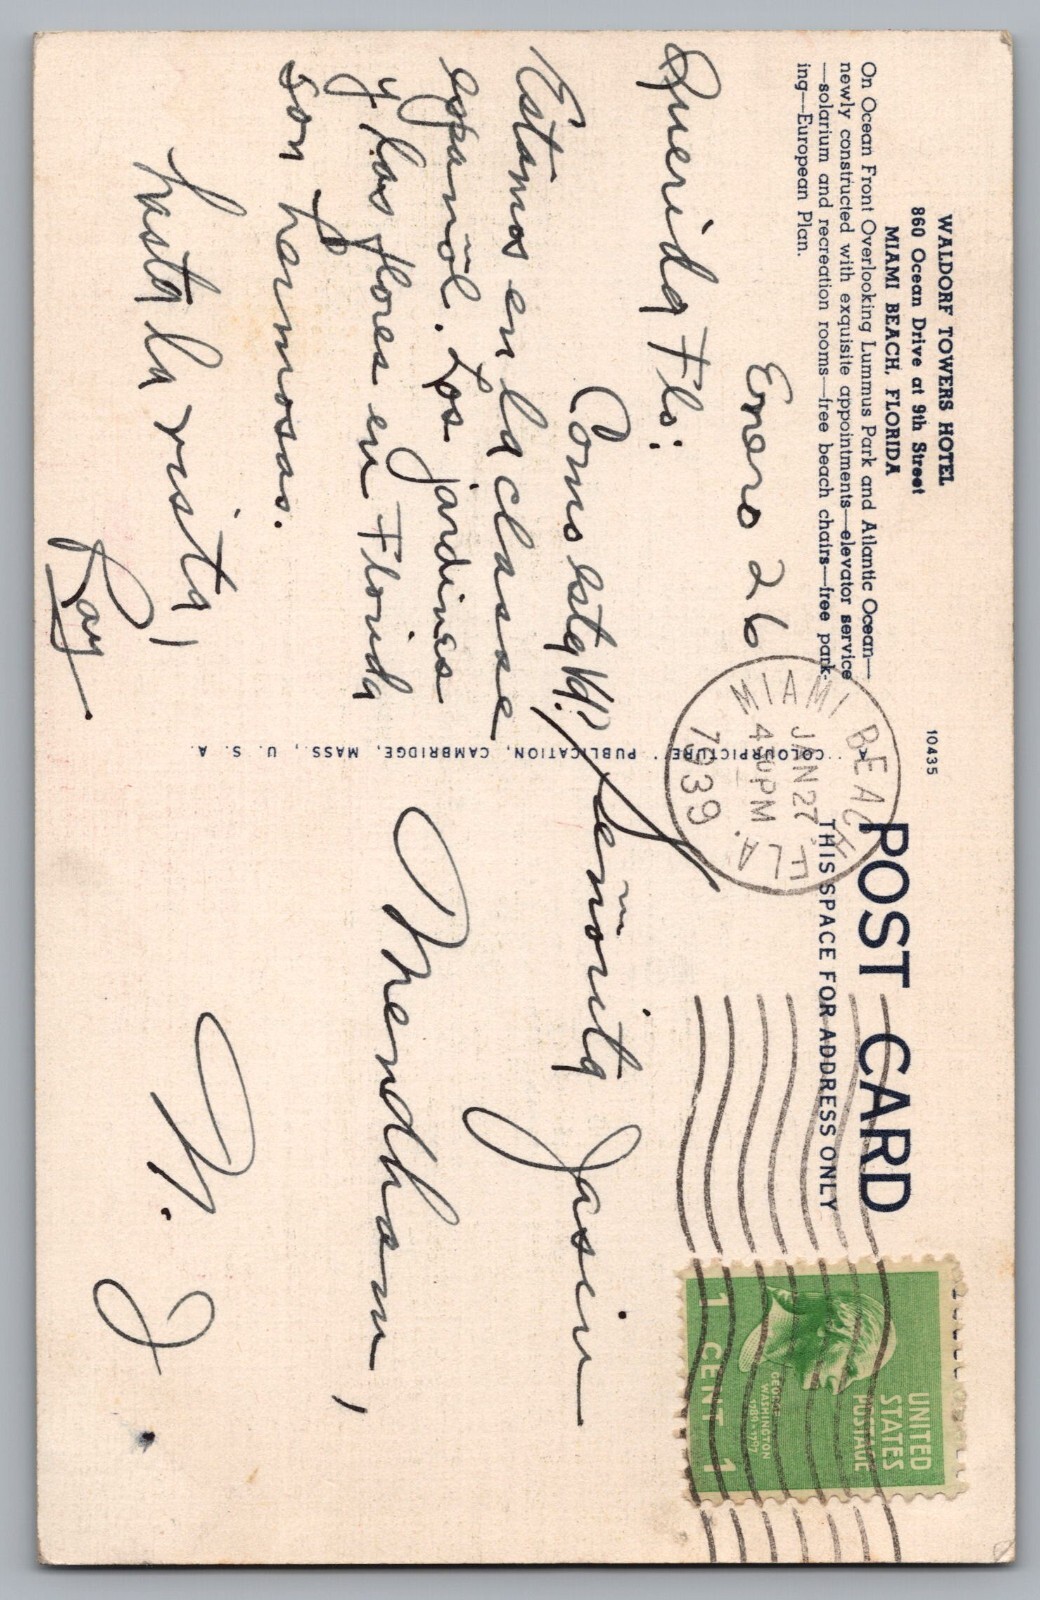 WALDORF TOWERS HOTEL
860 Ocean Drive at 9th Street
MIAMI BEACH, FLORIDA
On Ocean Front Overlooking Lummus Park and Atlantic Ocean—
newly constructed with exquisite appointments—elevator service
—solarium and recreation rooms—free beach chairs—free park-
ing—European Plan.
Enero 26
Querida Flo:
Como esta Vd?
Estamos en la classe
espanõl. Los jardines
y las flores en Florida
son hermosas.
hasta la vista,
Ray
10435
A "COLOURPICTURE" PUBLICATION, CAMBRIDGE, MASS., U. S. A.
POST CARD
THIS SPACE FOR ADDRESS ONLY
MIAMI BEACH, FLA.
JAN 27
4 PM
1939
UNITED
STATES
POSTAGE
GEORGE
WASHINGTON
1789-1797
1 CENT 1
Señorita Jasin
Mendham,
N. J.